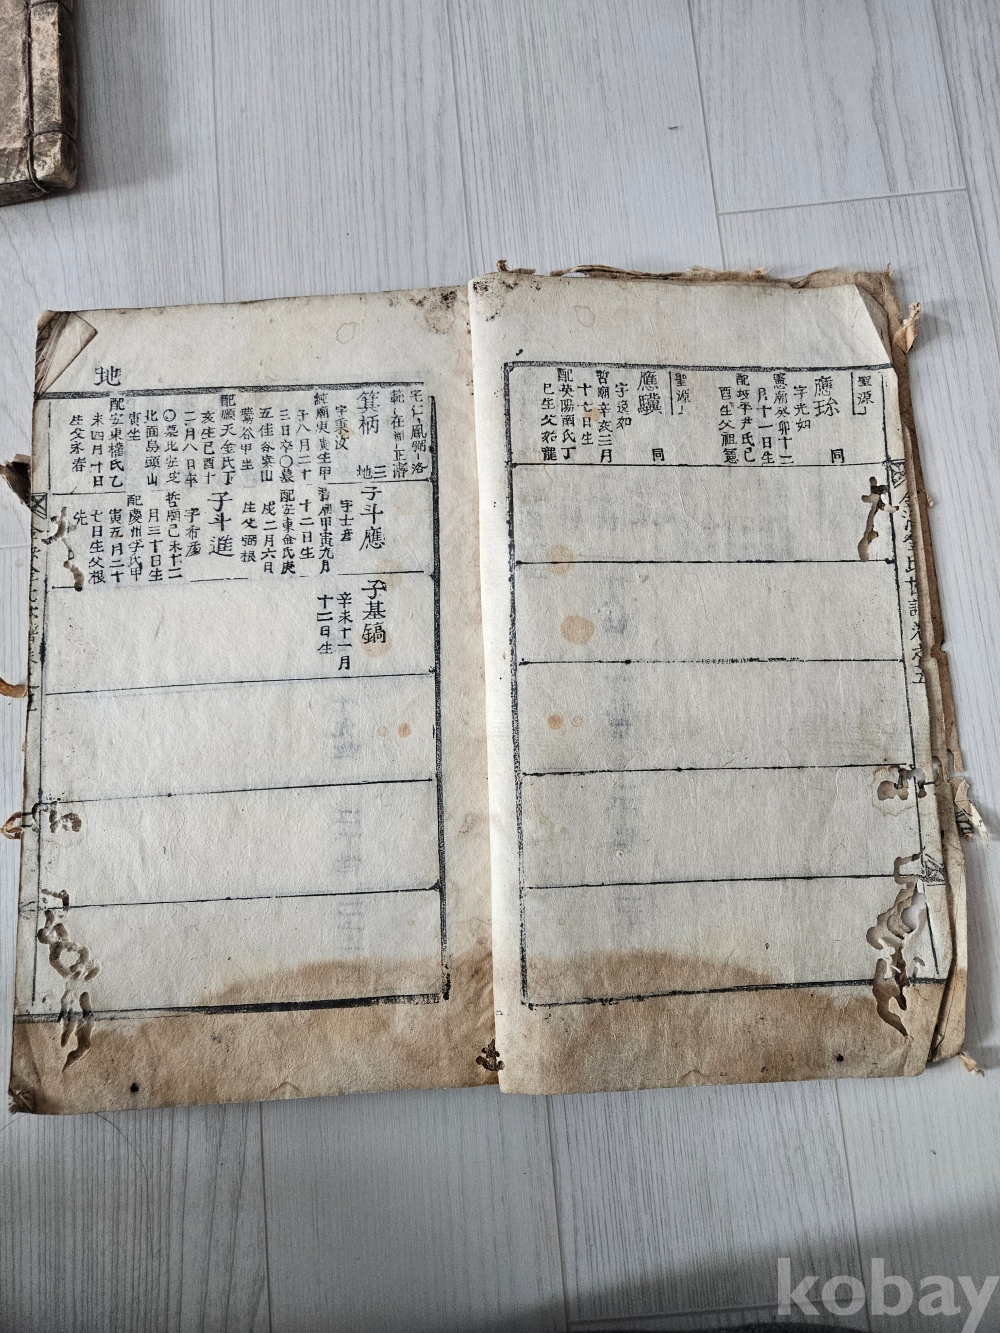 聖源
應珎
同
字光如
憲廟癸卯十二
月十一日生
配坡平尹氏己
酉生父祖
聖源
應驥
同
字浚如
哲廟辛亥三月
十七日生
配英陽南氏丁
巳生父
氏世譜卷之五
地
箕柄
三
地
字秉汶
純廟庚寅生甲
子八月二十
三日卒〇墓
五佳谷案山
鶯谷甲坐
配順天金氏丁
亥生己酉十
二月八日卒
〇墓北
北面易頭山
寅坐
配安東權氏乙
未四月十日
生父
子斗應
字士彥
哲廟甲寅九月
十二日生
配安東金氏庚
戌二月六日
生父弼根
子斗進
字布彥
哲廟己未十二
月三十日生
配慶州李氏甲
寅五月二十
七日生父根
先
子基鎬
辛未十一月
十二日生
kobay